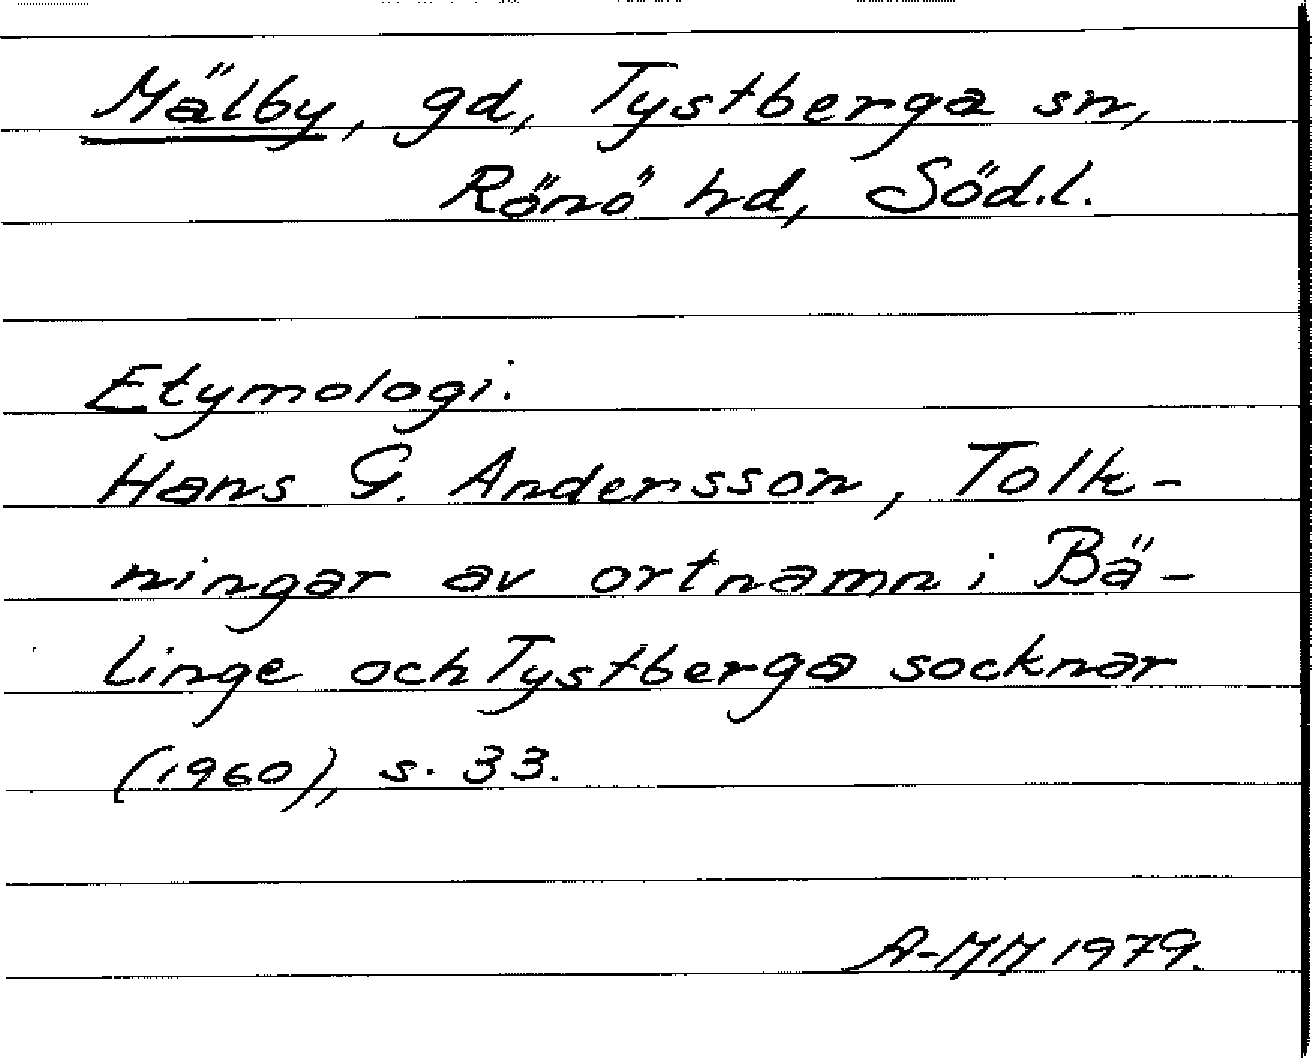 Mälby, gd, Tystberga sn,
Rönö hd, Söd.l.
Etymologi.
Hans G. Andersson, Tolk-
ningar av ortnamn i Bä-
linge och Tystberga socknar
(1960), s. 33.
A-MM 1979.